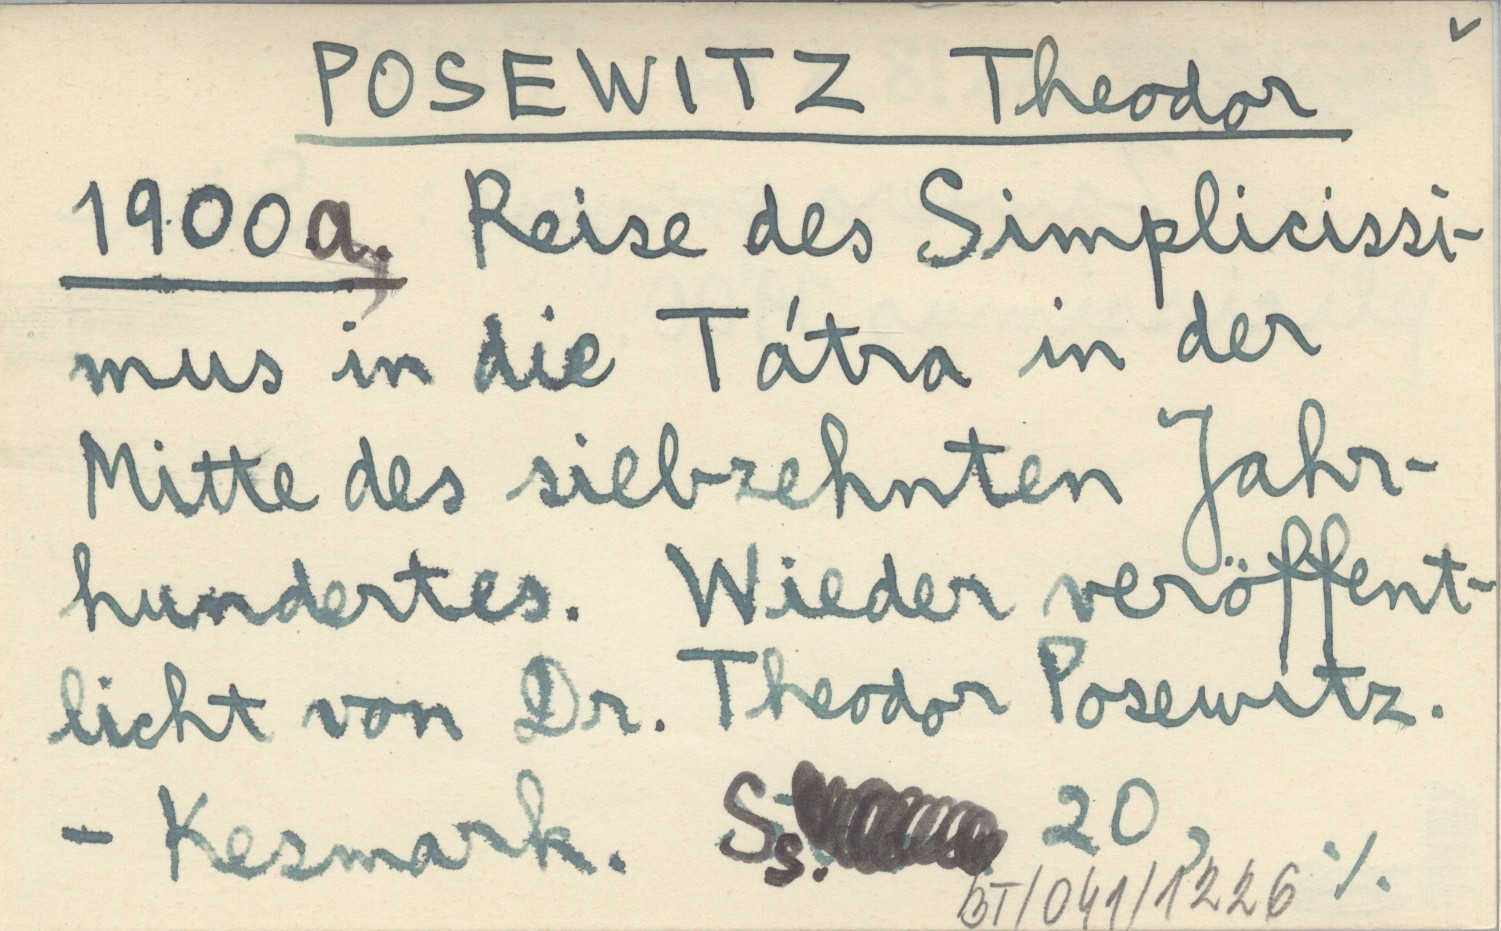 POSEWITZ Theodor
1900a. Reise des Simplicissi-
mus in die Tátra in der
Mitte des siebzehnten Jahr-
hundertes. Wieder veröffent-
licht von Dr. Theodor Posewitz.
- Kesmark. Ss. 20, ·/.
BT/041/1226